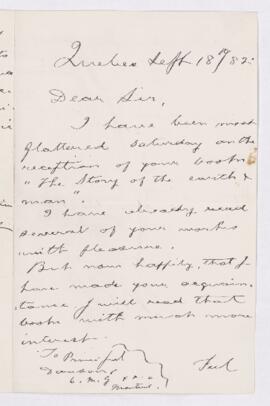 Quebec Sept 18th/82.
Dear Sir,
I have been most
flattered Saturday on the
reception of your book
"The Story of the earth &
man".
I have already read
several of your works
with pleasure.
But now happily, that I
have made your acquain-
tance I will read that
book with much more
interest.
To Principal
Dawson
C. M. G
Montreal